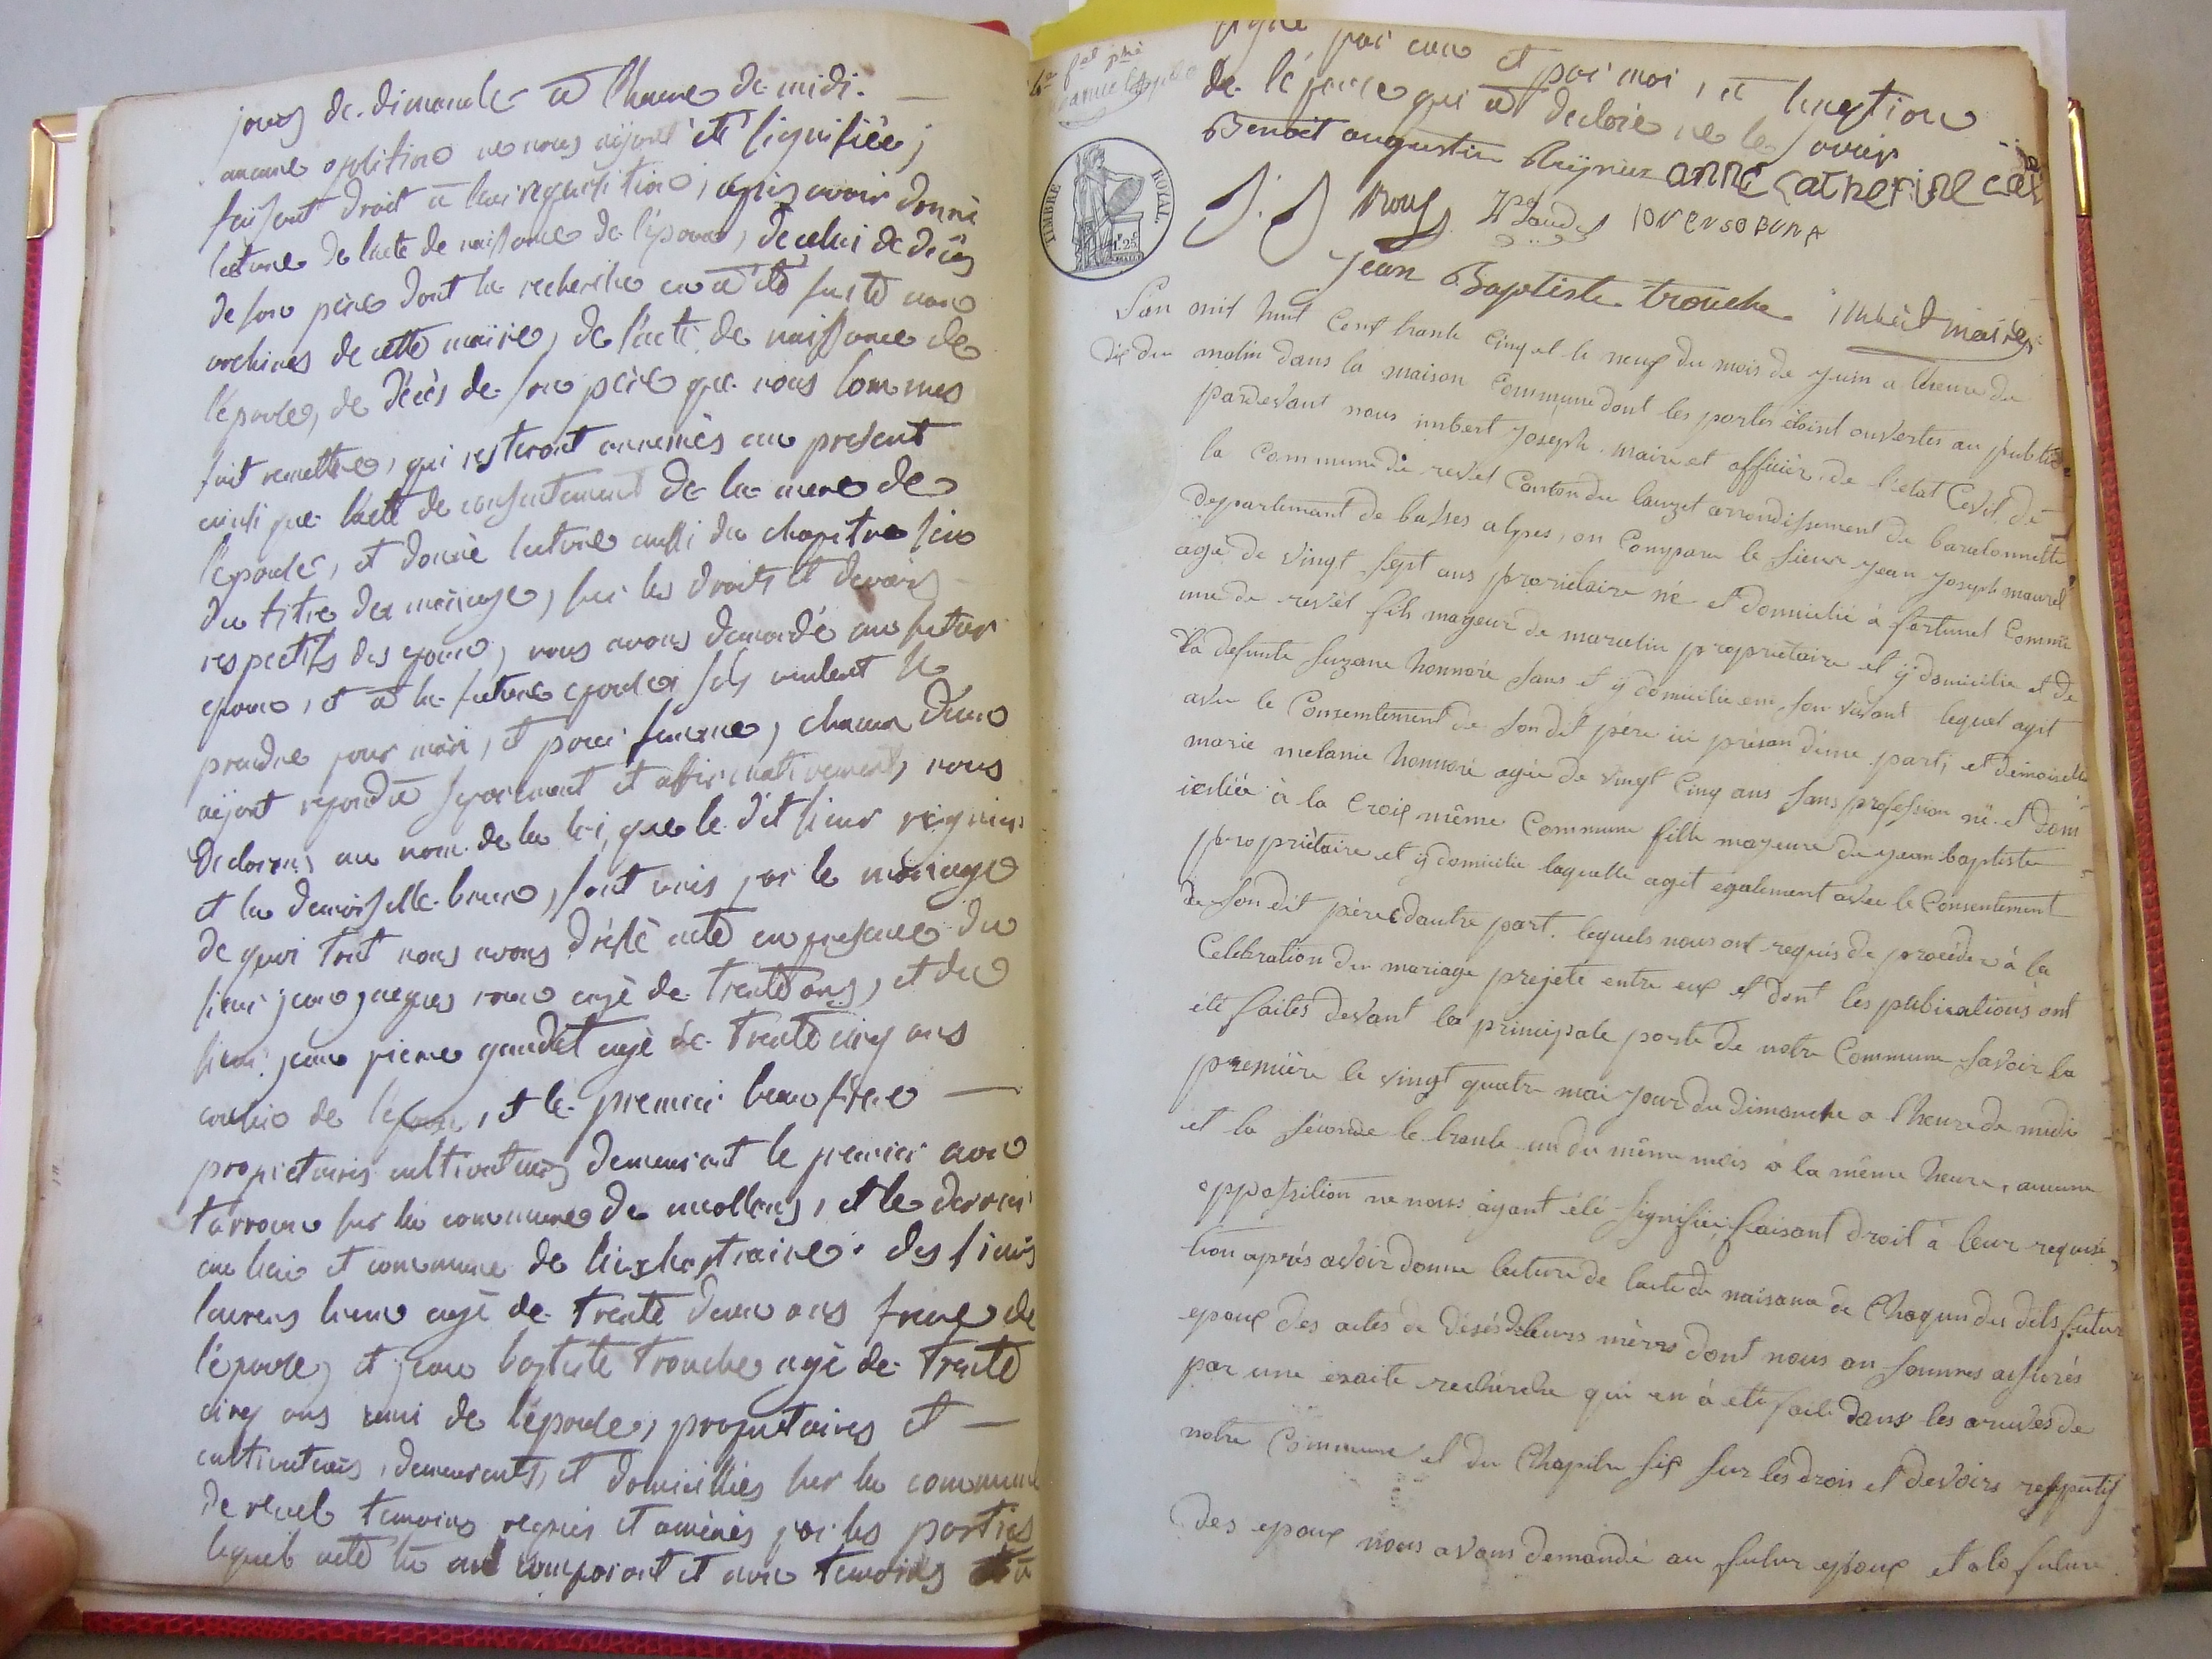 jours de dimanche à l'heure de midi.
aucune opotition ne nous aÿant été signifiée;
faisant droit à leur requisition, après avoir donné
lecture de l'acte de naissance de l'époux, de celui de décès
de son père dont la recherche en a été faite aux
archives de cette mairie, de l'acte de naissance de
l'épouse, de décès de son père que nous sommes
fait remettre, qui resteront annexés au present
ainsi que l'acte de consentement de la mere de
l'épouse, et donné lecture aussi du chapitre six
du titre du mariage, sur les droits et devoirs
respectifs des epoux, nous avons demandé au futur
epoux, et à la future epouse s'ils veulent se
prendre pour mari, et pour femme, chacun d'eux
aÿant repondu separement et affirmativement, nous
declarons au nom de la loi, que le dit sieur reynier
et la demoiselle brun, sont unis par le mariage
de quoi tout nous avons dressé acte en presence du
sieur jean jacques roux agé de trente ans, et du
sieur jean pierre gaudet agé de trente cinq ans
cousin de l'epoux, et le premier beau frere
propriétaires cultivateurs demeurant le premier au
tarroux sur la commune de meollans, et le dernier
au lieu et commune de des sieurs
laurens brun agé de trente deux ans frere de
l'épouse, et jean baptiste trouche agé de trente
cinq ans ami de l'épouse, propriétaires et
cultivateurs, demeurants, et domiciliés sur la commune
de revel temoins requis et amenés par les parties
lequel acte lu aux comparant et aux temoins a
signé par eux et par moi, à l'exeption
de l'épouse qui a declaré ne le savoir
Benoit augustin Reÿnier anne catherine
J. J. Roux Gaudet lorens obruna
Jean Baptiste trouche imbert maire
TIMBRE ROYAL.
1f.25c
L'an mil huit cent trante cinq et le neuf du mois de Juin a lheure de
dix du matin dans la maison Commune dont les portes étoint ouvertes au public
pardevant nous imbert Joseph maire et officier de l'etat Cevil de
la Commune de revel Canton du lauzet arrondissement de barcelonnette
departement de basses alpes, on Comparu le sieur Jean Joseph maurel
agé de vingt sept ans propriétaire né et domicilié à fortunet Commu
une de revèl fils mageur de marcelin propriétaire et ÿ domicilié et de
la defunte suzane honnoré sans et ÿ domiciliée en son vivant lequel agit
avec le Consentement de son dit père ici présan d'une part, et demoiselle
marie melanie honnoré agée de vingt cinq ans sans profession né et dom
iciliée à la Croix même Commune fille mageure de Jean baptiste
propriétaire et ÿ domicilié laquelle agit egalement avec le Consentement
de son dit père dautre part. lequels nous ont requis de procéder à la
Célébration du mariage projeté entre eux et dont les publications ont
été faites devant la principale porte de notre Commune Savoir la
première le vingt quatre mai jour du dimanche a l'heure de midi
et la séconde le trante un du même mois à la même heure, aucune
oppossition ne nous ayant été signifiée, faisant droit à leur requisi
tion après avoir donné lecture de lacte de naisance de Chaqun des dits futur
epoux des actes de désés de leurs mères dont nous an sommes assurés
par une exaite recherche qui en à eté fait dans les aruives de
notre Commune et du Chapitre six sur les droit et devoirs respectif
des epoux nous avons demandé au futur époux et a la future